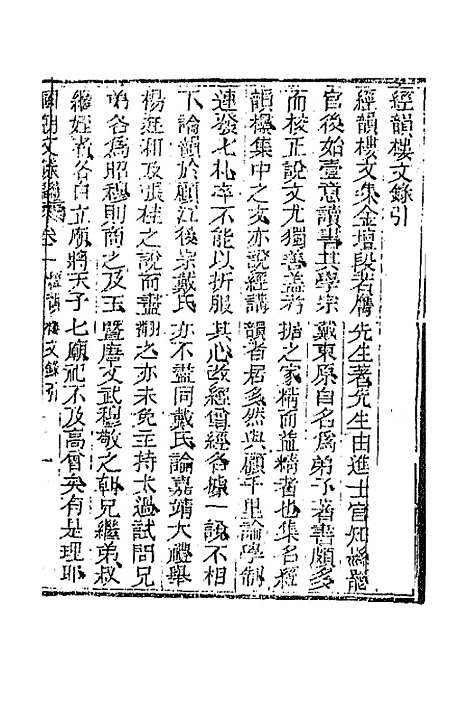 經韻樓文錄引
經韻樓文集金壇段若膺先生著先生由進士官知縣罷
官後始壹意讀書其學宗戴東原自名為弟子著書頗多
而校正說文尤獨善蓋考据之家精而益精者也集名經
韻樓集中之文亦說經講韻者居多然與顧千里論學制
連發七札卒不能以折服其心改經曾經各據一說不相
下論韻於顧江後宗戴氏亦不盡同戴氏論嘉靖大禮舉
楊廷和及張桂之說而盡翻之亦未免主持太過試問兄
弟各為昭穆則商之及王暨唐文武穆敬之朝兄繼弟叔
繼姪者各自立廟將天子七廟祀不及高曾矣有是理耶
國朝文錄 卷一 經韻樓文錄引 一